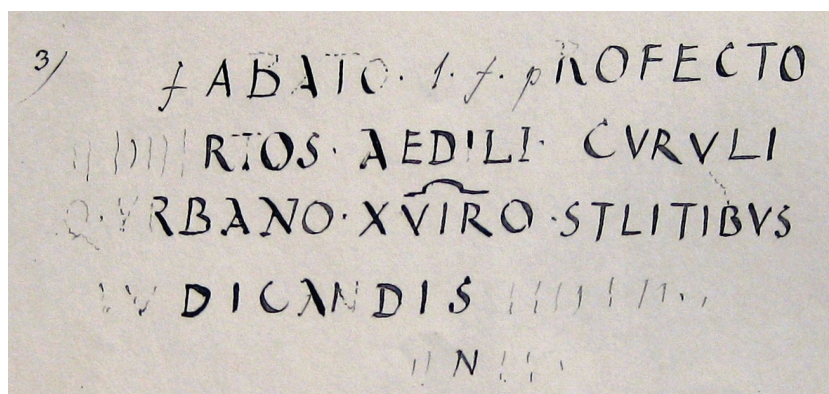 3) fABATO · l · f · pROFECTO
RTOS · AEDILI · CVRVLI
Q · VRBANO · XVIRO · STLITIBVS
IVDICANDIS
N